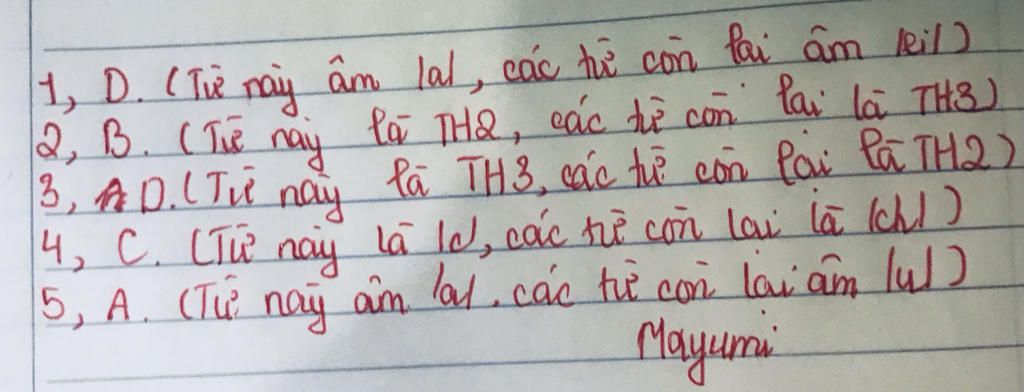 1, D. (Từ này âm /a/, các từ còn lại âm /ei/)
2, B. (Từ này là TH2, các từ còn lại là TH3)
3, D. (Từ này là TH3, các từ còn lại là TH2)
4, C. (Từ này là /c/, các từ còn lại là /ch/)
5, A. (Từ này âm /a/, các từ còn lại âm /u/)
Mayumi